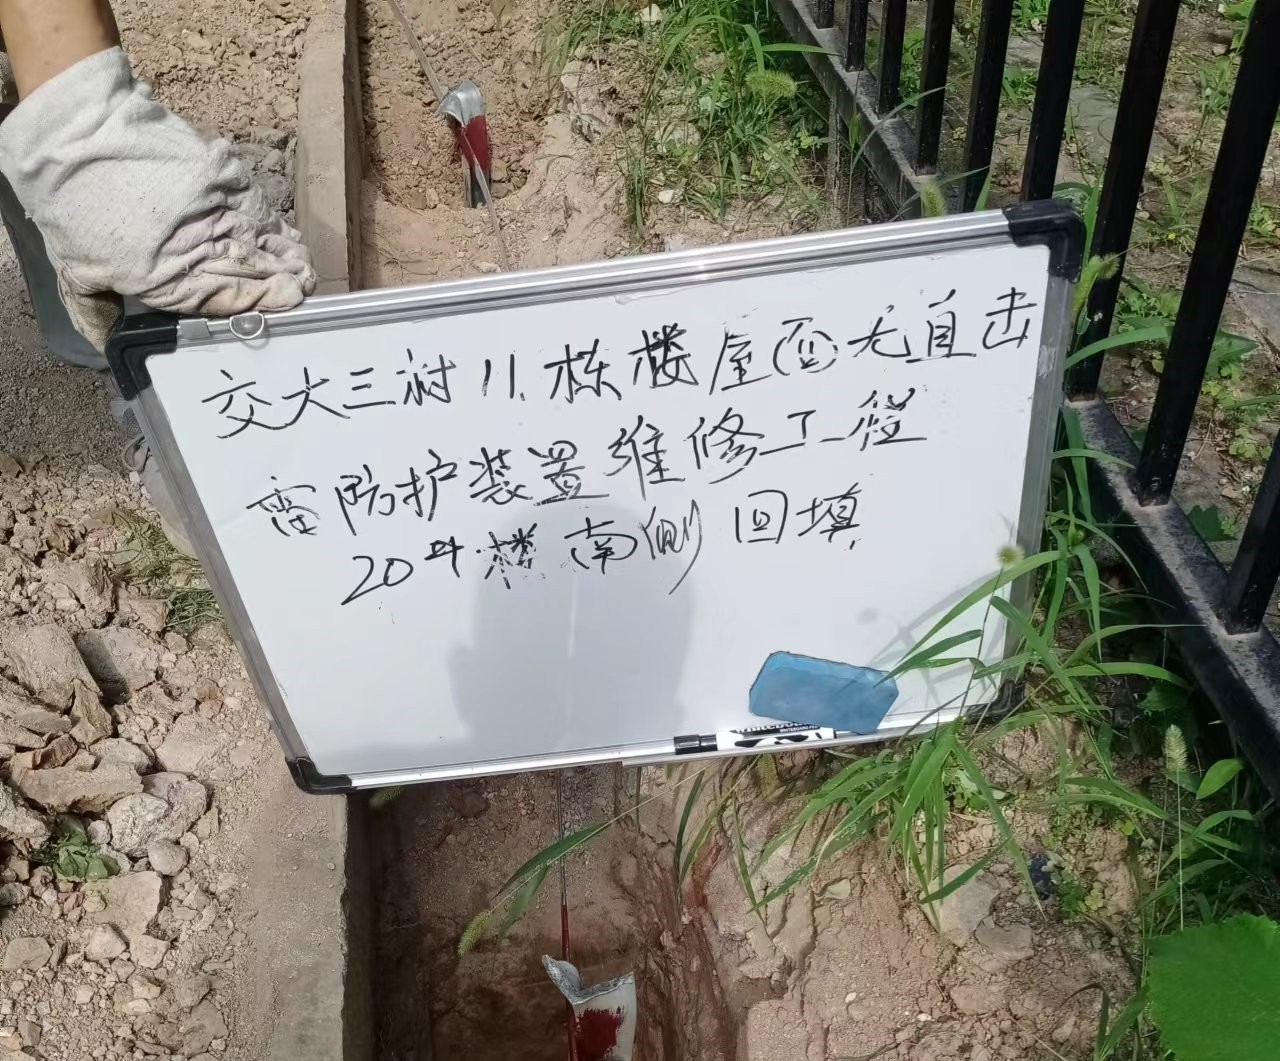 交大三村11栋楼屋面无直击
雷防护装置维修工程
20#楼南侧回填